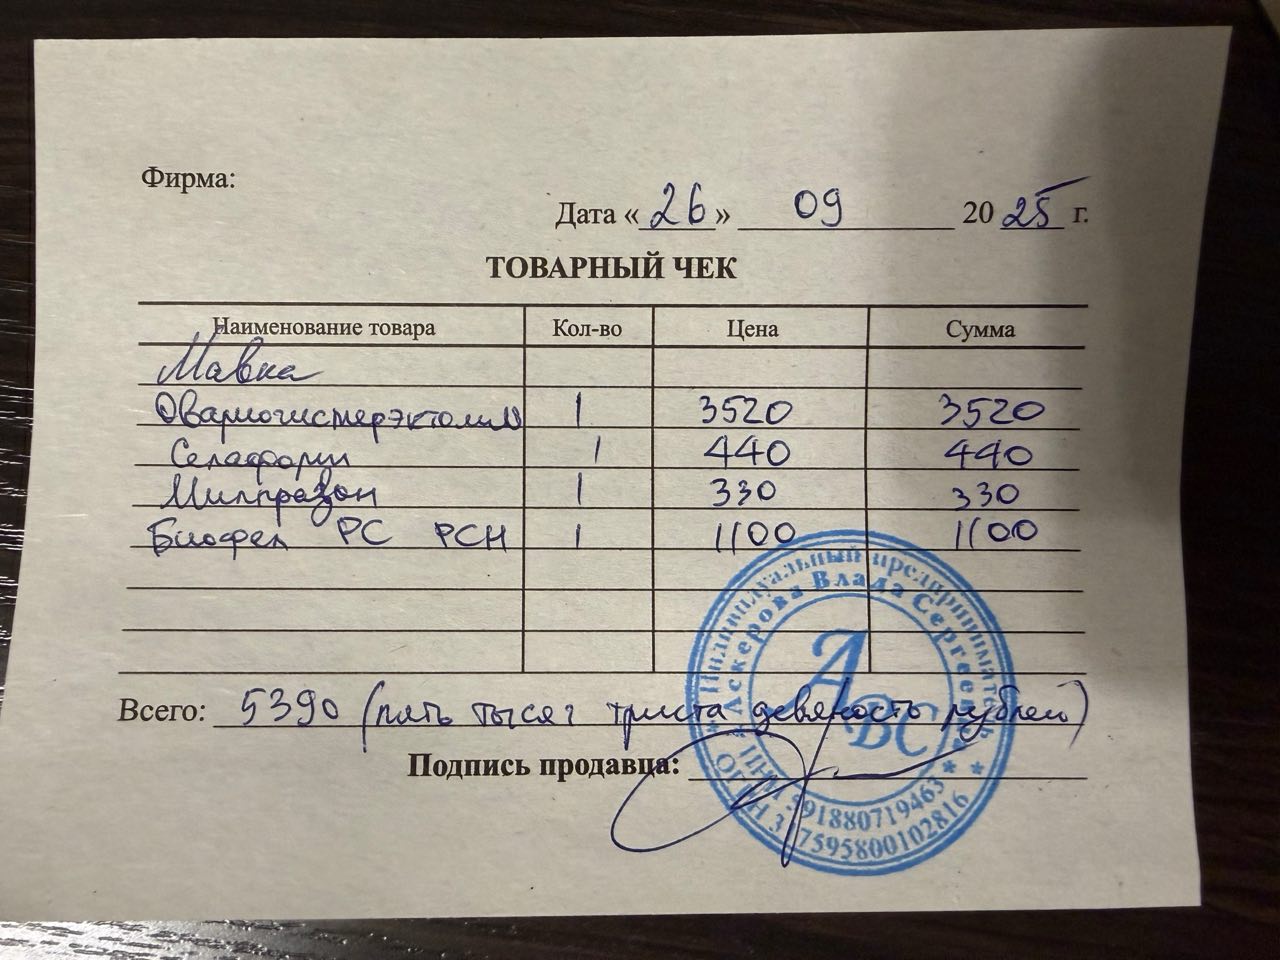 Фирма:
Дата «26» 09 2025 г.
ТОВАРНЫЙ ЧЕК
Наименование товара Кол-во Цена Сумма
Мавка
Овариогистерэктомия 1 3520 3520
Селафорт 1 440 440
Милпразон 1 330 330
Биофел PC PCH 1 1100 1100
Всего: 5390 (пять тысяч триста девяносто рублей)
Подпись продавца:
Индивидуальный предприниматель
Аскерова Влада Сергеевна
АВС
ИНН 591880719463
ОГРН 317595800102816